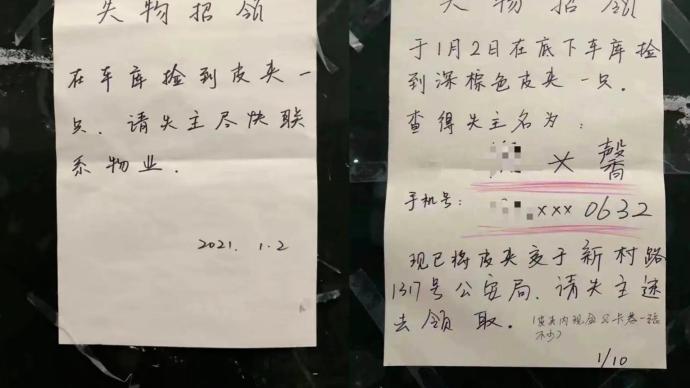 失物招领
在车库捡到皮夹一
只．请失主尽快联
系物业．
2021. 1.2
失物招领
于1月2日在底下车库捡
到深棕色皮夹一只．
查得失主名为：
× 馨
手机号： ××× 0632
现已将皮夹交于新村路
1317号公安局．请失主速
去领取．（皮夹内现金及卡卷一张
不少）
1/10